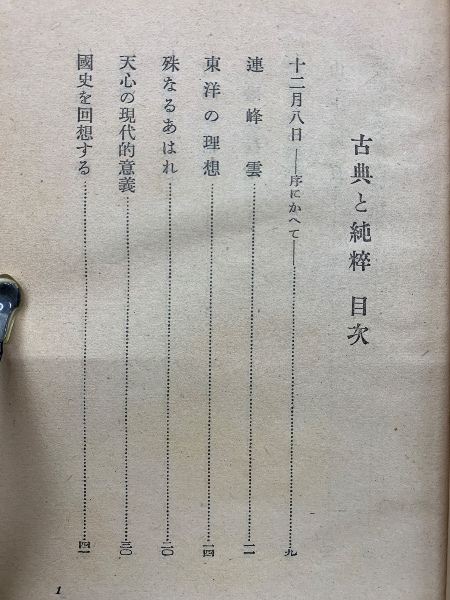 古典と純粹 目次
十二月八日 ――序にかへて――……九
連峰雲……一一
東洋の理想……一四
殊なるあはれ……二〇
天心の現代的意義……三〇
國史を回想する……四一
1